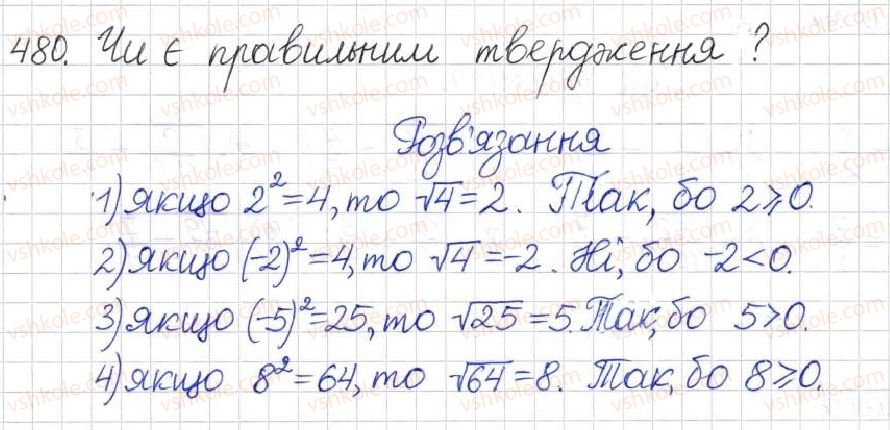 480. Чи є правильним твердження ?
Розв'язання
1) якщо 2²=4, то √4=2. Так, бо 2⩾0.
2) якщо (-2)²=4, то √4=-2. Ні, бо -2<0.
3) якщо (-5)²=25, то √25=5. Так, бо 5>0.
4) якщо 8²=64, то √64=8. Так, бо 8⩾0.
vshkole.com